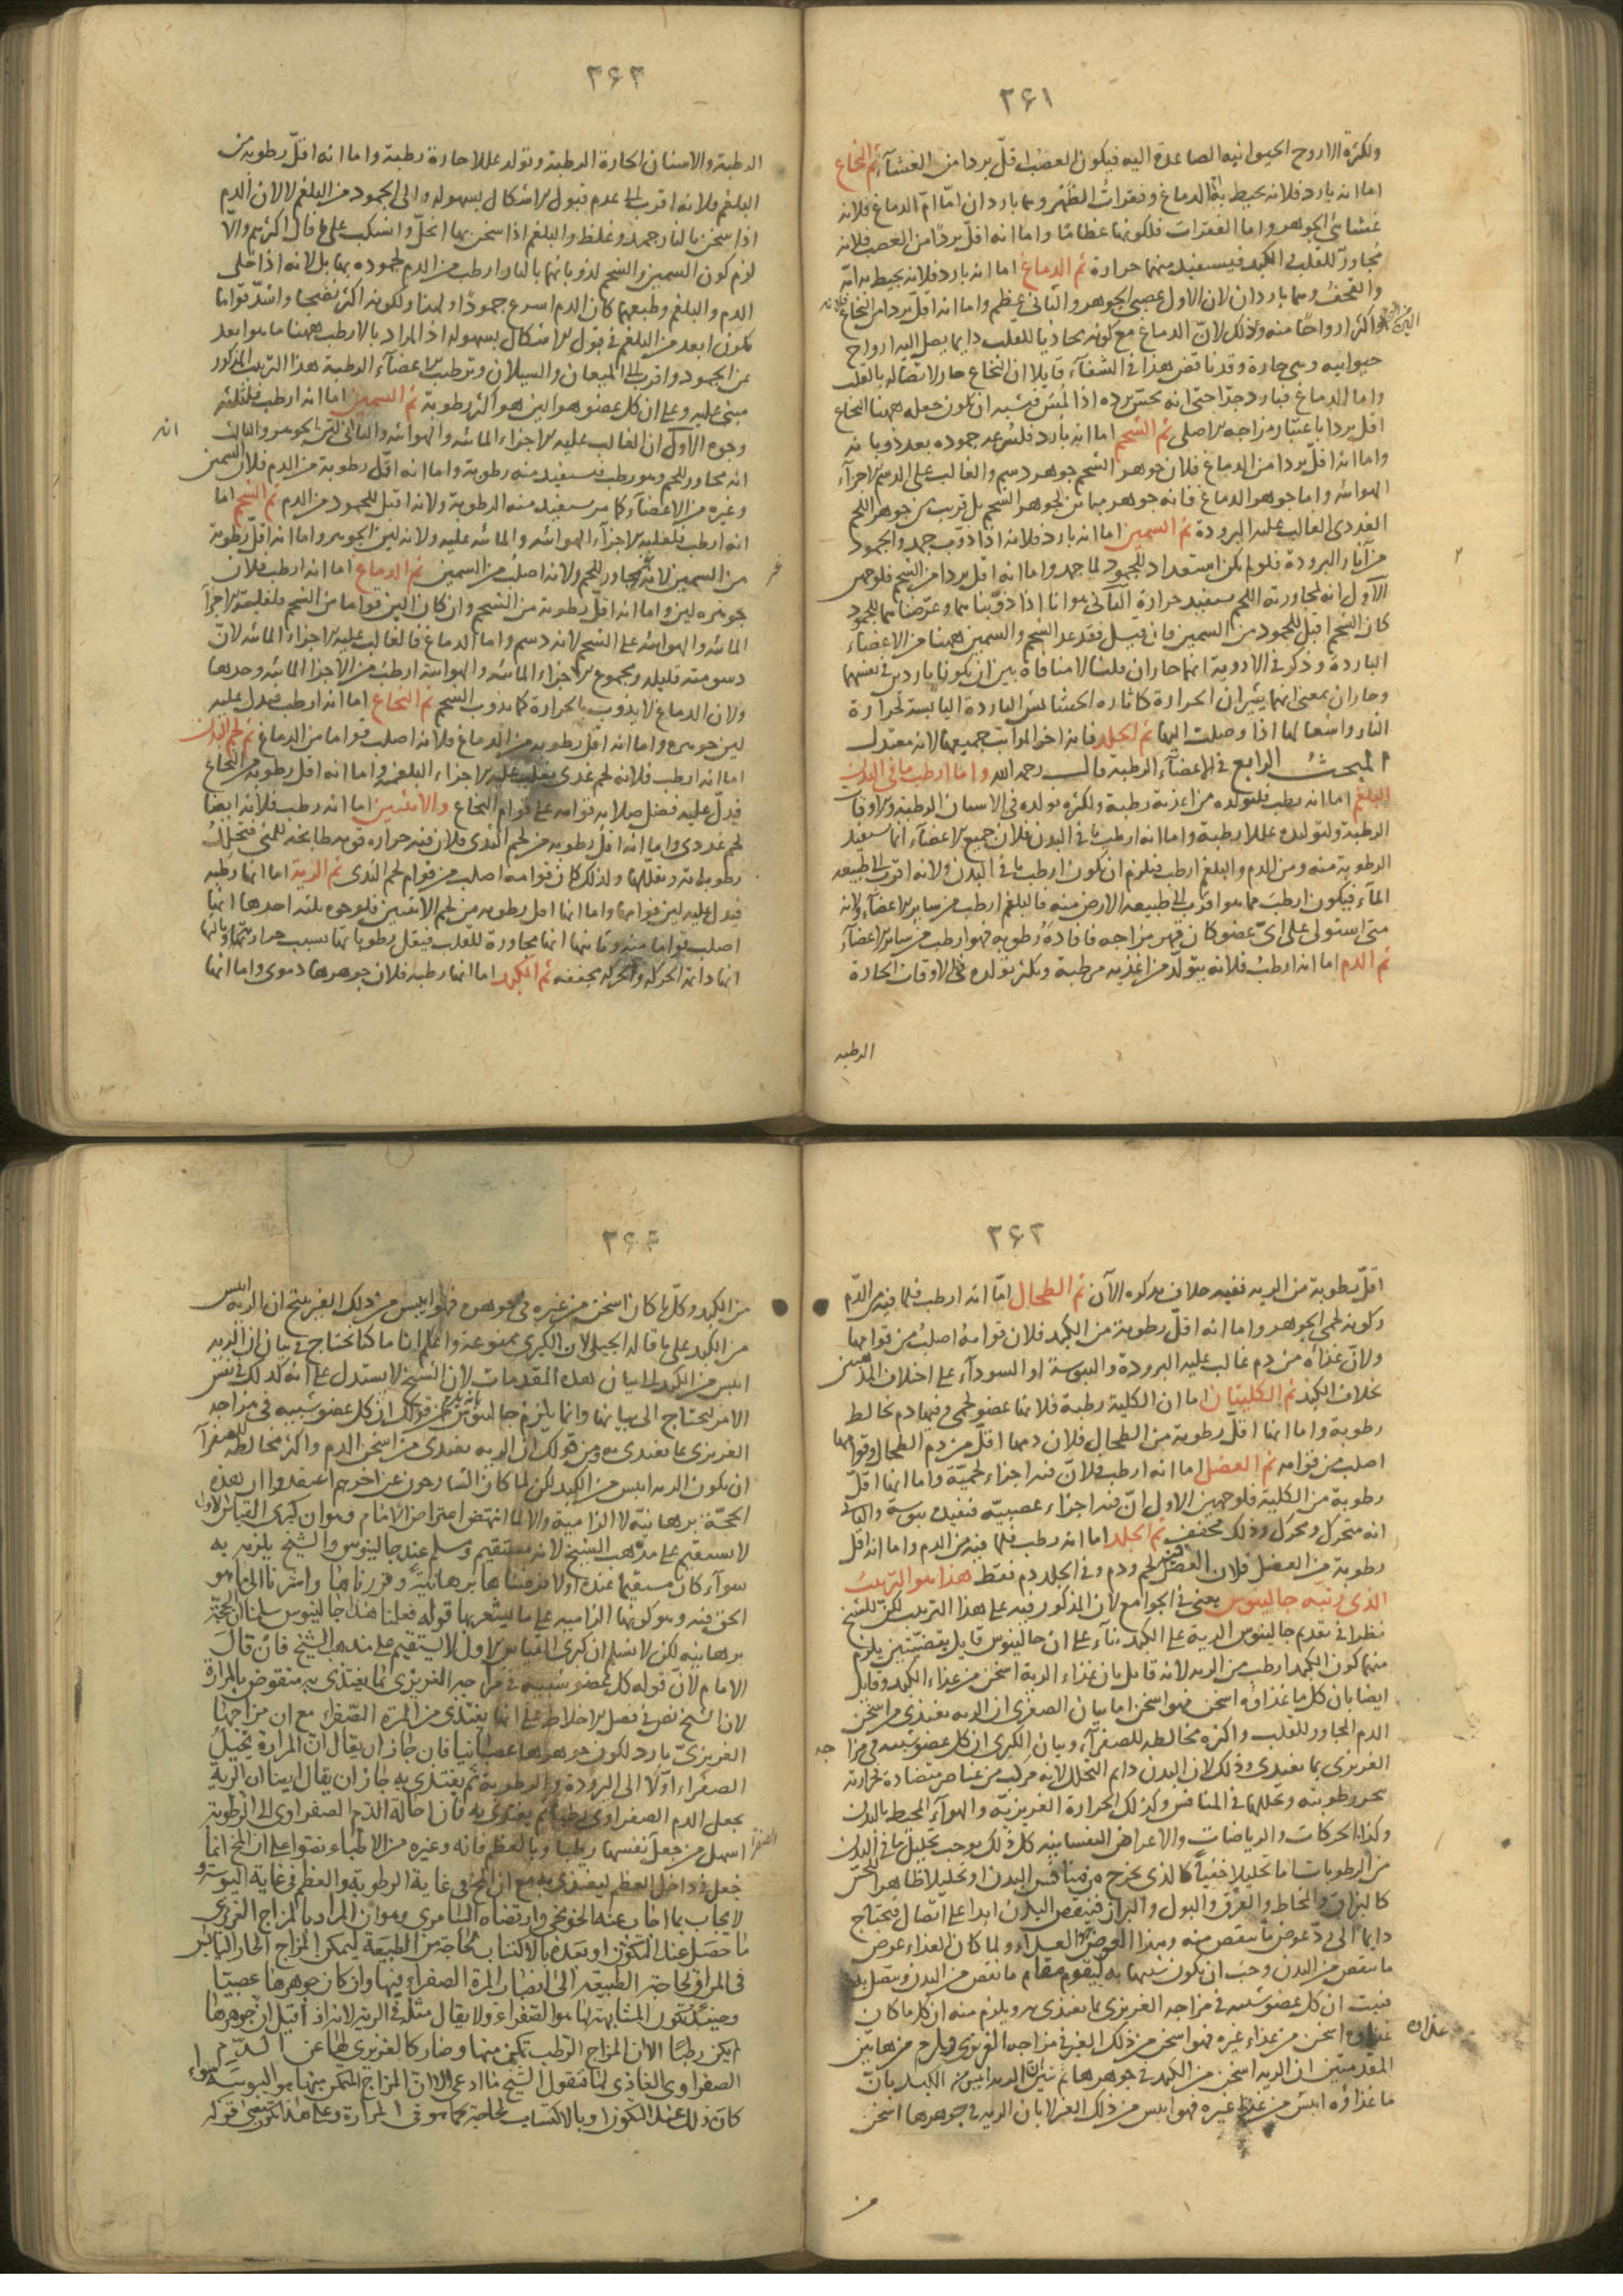 ٢٦١
ولكثرة الارواح الحيوانيه الصاعدة اليه فيكون العصب اقل بردا من الغشاء ثم النخاع
اما انه بارد فلانه يحيط به الدماغ وفقرات الظهر وهما باردان اما ام الدماغ فلانه
غشائى الجوهر واما الفقرات فلكونها عظاما واما انه اقل بردا من العصب فلانه
مجاور للقلب والكبد فيستفيد منهما حرارة ثم الدماغ اما انه بارد فلانه يحيط به امه
والقحف وهما باردان لان الاول عصبى الجوهر والثانى عظم واما انه اقل بردا من النخاع فلانه
اكثر ارواحا منه وذلك لان الدماغ مع كونه محاذيا للقلب دايما يصل اليه ارواح
حيوانيه وهى حارة وقد ناقض هذا فى الشفاء قايلا ان النخاع حار لاتصاله بالقلب
واما الدماغ فبارد جدا حتى انه يحس برده اذا لمس فيشبه ان يكون جعله ههنا النخاع
اقل بردا باعتبار مزاجه الاصلى ثم الشحم اما انه بارد فلسرعه جموده بعد ذوبانه
واما انه اقل بردا من الدماغ فلان جوهر الشحم جوهر دسم والغالب على الدسم الاجزاء
الهوائيه واما جوهر الدماغ فانه جوهر مباين لجوهر الشحم بل قريب من جوهر اللحم
الغددى الغالب عليه البرودة ثم السمين اما انه بارد فلانه اذا ذوب جمد والجمود
من آثار البرودة فلو لم يكن استعداد للجمود لما جمد واما انه اقل بردا من الشحم فلوجهين
الاول انه لمجاورته اللحم يستفيد حرارة الثانى هو انا اذا ذوبناهما وعرضناهما للجمود
كان الشحم اقبل للجمود من السمين فان قيل فقد عد الشحم والسمين ههنا من الاعضاء
الباردة وذكر فى الادوية انهما حاران قلنا لا منافاة بين ان يكونا باردين فى نفسهما
وحاران بمعنى انهما يثيران الحرارة كاثارة الحشائش الباردة اليابسة لحرارة
النار واشعالها اذا وصلت اليها ثم الجلد فانه اخر المراتب جميعها لانه معتدل
المبحث الرابع فى الاعضاء الرطبه قال رحمه الله واما ارطب ما فى البدن
البلغم اما انه رطب فلتولده من اغذية رطبة ولكثره تولده فى الاسنان الرطبه والاوقات
الرطبة ولتوليده عللا رطبة واما انه ارطب ما فى البدن فلان جميع الاعضاء انما يستفيد
الرطوبة منه ومن الدم والبلغم ارطب فيلزم ان يكون ارطب ما فى البدن ولانه اقرب الى طبيعه
الماء فيكون ارطب مما هو اقرب الى طبيعه الارض منه فالبلغم ارطب من ساير الاعضاء ولانه
متى استولى على اى عضو كان قهر مزاجه فافاده رطوبه فهو ارطب من ساير الاعضاء
ثم الدم اما انه ارطب فلانه يتولد من اغذيه مرطبة ويكثر تولده فى الاوقات الحارة
الرطبه
٢٦٢
الرطبة والاسنان الحارة الرطبة وتولد عللا حارة رطبة واما انه اقل رطوبه من
البلغم فلانه اقرب الى عدم قبول الاشكال بسهوله والى الجمود من البلغم لا لان الدم
اذا سخن بالنار جمد وغلظ والبلغم اذا سخن بها انحل وانسكب على ما قال اكثرهم والا
لزم كون السمين والشحم لذوبانهما بالنار ارطب من الدم لجموده بها بل لانه اذا خلى
الدم والبلغم وطبعهما كان الدم اسرع جمودا ولكونه اكثر نضجا واشد قواما
يكون ابعد من البلغم فى قبول الاشكال بسهوله اذ المراد بالارطب ههنا ما هو ابعد
عن الجمود واقرب الى الميعان والسيلان وترطيب الاعضاء الرطبة هذا الترتيب المذكور
مبنى عليه وعلى ان كل عضو هو الين هو اكثر رطوبة ثم السمين اما انه ارطب فلثلثه
وجوه الاول ان الغالب عليه الاجزاء المائيه والهوائيه والثانى انه لين الجوهر والثالث
انه مجاور للحم وهو رطب فيستفيد منه رطوبة واما انه اقل رطوبة من الدم فلان السمين
وغيره من الاعضاء كما مر يستفيد منه الرطوبة ولانه اقبل للجمود من الدم ثم الشحم اما
انه ارطب فلغلبة الاجزاء الهوائيه والمائيه عليه ولانه لين الجوهر واما انه اقل رطوبة
من السمين لانه غير مجاور للحم ولانه اصلب من السمين ثم الدماغ اما انه ارطب فلان
جوهره لين واما انه اقل رطوبة من الشحم وان كان الين قواما من الشحم فلغلبة الاجزاء
المائيه والهوائيه على الشحم لانه دسم واما الدماغ فالغالب عليه الاجزاء المائيه لان
دسومته قليله ومجموع الاجزاء المائيه والهوائيه ارطب من الاجزا المائيه وحدها
ولان الدماغ لا يذوب بالحرارة كما يذوب الشحم ثم النخاع اما انه ارطب فيدل عليه
لين جوهره واما انه اقل رطوبه من الدماغ فلانه اصلب قواما من الدماغ ثم لحم الثدى
اما انه ارطب فلانه لحم غددى يغلب عليه الاجزاء البلغميه واما انه اقل رطوبه من النخاع
فيدل عليه فضل صلابه قوامه على قوام النخاع والانثيين اما انه رطب فلانه ايضا
لحم غددى واما انه اقل رطوبه من لحم الثدى فلان فيه حراره قويه طابخه للمنى فتحلل
رطوباته وتقللها ولذلك كان قوامه اصلب من قوام لحم الثدى ثم الرية اما انها رطبه
فيدل عليه لين قوامها واما انها اقل رطوبه من لحم الانثيين فلوجوه ثلثه احدها انها
اصلب قواما منه وثانيها انها مجاورة للقلب فيقل رطوباتها بسبب حرارتهما وثالثها
انها دائمة الحركه والحركه مجففه ثم الكبد اما انها رطبه فلان جوهرها دموى واما انها
٢٦٣
اقل رطوبة من الريه ففيه خلاف يذكره الآن ثم الطحال اما انه ارطب فلما فيه من الدم
وكونه لحمى الجوهر واما انه اقل رطوبة من الكبد فلان قوامه اصلب من قوامها
ولان غذاه من دم غالب عليه البرودة واليبوسة او السوداء على اختلاف المذهبين
بخلاف الكبد ثم الكليتان اما ان الكلية رطبة فلانها عضو لحمى وفيها دم يخالط
رطوبة واما انها اقل رطوبة من الطحال فلان دمها اقل من دم الطحال وقوامها
اصلب من قوامه ثم العضل اما انه ارطب فلان فيه اجزاء لحمية واما انها اقل
رطوبة من الكلية فلوجهين الاول ان فيه اجزاء عصبيه فتفيده يبوسة والثانى
انه متحرك ومحرك وذلك مجفف ثم الجلد اما انه رطب فلما فيه من الدم واما انه اقل
رطوبة من العضل فلان فى العضل لحم ودم وفى الجلد دم فقط هذا هو الترتيب
الذى رتبه جالينوس يعنى فى الجوامع لان المذكور فيه على هذا الترتيب لكن للشيخ
نظرا فى تقديم جالينوس الرية على الكبد بناء على ان جالينوس قايل بقضيتين يلزم
منهما كون الكبد ارطب من الريه لانه قايل بان غذاء الرية اسخن من غذاء الكبد وقايل
ايضا بان كل ما غذاؤه اسخن فهو اسخن اما بيان الصغرى ان الريه تغتذى من اسخن
الدم المجاور للقلب واكثره مخالطه للصفراء وبيان الكبرى ان كل عضو شبيه فى مزاجه
الغريزى بما يغتذى وذلك لان البدن دايم التحلل لانه مركب من عناصر متضادة لحرارته
تحرر رطوبته وتحللها فى المنافس وكذلك الحرارة الغريزية والهواء المحيط بالبدن
وكذا الحركات والرياضات والاعراض النفسانيه كل ذلك يوجب تحليل ما فى البدن
من الرطوبات اما تحليلا خفيا كالذى يخرج من منافس البدن او تحليلا ظاهرا للحس
كالبزاق والمخاط والعرق والبول والبراز فينقص البدن ابدا على اتصال فيحتاج
دايما الى رد عوض ما ينقص منه وهذا العوض هو الغذاء ولما كان الغذاء عوض
ما ينقص من البدن وجب ان يكون شبيها به ليقوم مقام ما نقص من البدن ويتصل به
فثبت ان كل عضو شبيه فى مزاجه الغريزى بما يغتذى به ويلزم منه ان كل ما كان
غذاؤه اسخن من غذاء غيره فهو اسخن من ذلك الغير فى مزاجه الغريزى ويلزم من هاتين
المقدمتين ان الريه اسخن من الكبد فى جوهرها ثم تبين ان الريه ايبس من الكبد بان
ما غذاؤه ايبس من غذاء غيره فهو ايبس من ذلك الغير لا بان الريه فى جوهرها اسخن
من
٢٦٤
من الكبد وكل ما كان اسخن من غيره فى جوهره فهو ايبس من ذلك الغير ينتج ان الريه ايبس
من الكبد على ما قاله الجيلى لان الكبرى ممنوعة واعلم انا ما كنا نحتاج فى بيان ان الريه
ايبس من الكبد الى بيان هذه المقدمات لان الشيخ لا يستدل على انه كذلك فى نفس
الامر ليحتاج الى بيانها وانما يلزم جالينوس من قولك ان كل عضو شبيه فى مزاجه
الغريزى بما يغتذى به ومن قولك ان الريه تغتذى من اسخن الدم واكثر مخالطه للصفراء
ان يكون الريه ايبس من الكبد لكن لما كان الشارحون عن اخرهم اعتقدوا ان هذه
الحجة برهانية لا الزامية والا لما انتهض اعتراض الامام وهو ان كبرى القياس الاول
لا يستقيم على مذهب الشيخ لانه مستقيم وسلم عند جالينوس والشيخ يلزمه به
سواء كان مستقيما عنده اولا فرضناها برهانية وقررناها واشرنا الى ما هو
الحق فيه وهو كونها الزاميه على ما يشعر بها قوله فعلنا هذا جالينوس سلمنا ان الحجة
برهانيه لكن لا نسلم ان كبرى القياس الاول لا يستقيم على مذهب الشيخ فان قال
الامام لان قوله كل عضو شبيه فى مزاجه الغريزى بما يغتذى به منقوض بالمرارة
لان الشيخ نص فى فصل الاخلاط على انها يغتذى من المرة الصفراء مع ان مزاجها
الغريزى بارد لكون جوهرها عصبانيا فان جاز ان يقال ان المرارة تحيل
الصفراء اولا الى البرودة والرطوبة ثم يغتذى به جاز ان يقال ايضا ان الرية
يجعل الدم الصفراوى رطبا ثم يغتذى به فان احالة الدم الصفراوى الى الرطوبة
اسهل من جعل نفسها رطبا وبالعظم فانه وغيره من الاطباء نصوا على ان المخ انما
جعل فى داخل العظم ليغتذى به مع ان المخ فى غاية الرطوبة والعظم فى غاية اليبوسة
لا يجاب بما اجاب عنه الخونجى وارتضاه السامرى وهو ان المراد بالمزاج الغريزى
ما حصل عند التكون او بعده بالاكتساب لحاجة من الطبيعة ليمكن المزاج الحار اليابس
فى المرارة لحاجة الطبيعه الى انصباب المرة الصفراء فيها وان كان جوهرها عصبيا
وحينئذ تكون المشابهة لها هو الصفراء ولا يقال مثله فى الرية لانه اذ قيل ان جوهرها
لم يكن رطبا الا ان المزاج الرطب تمكن منها وصار كالغريزى لها عن الدم
الصفراوى الغاذى لها فنقول الشيخ ما ادعى الا ان المزاج المتمكن منها هو اليبوسة سواء
كان ذلك عند التكون او بالاكتساب لحاجة كما هو فى المرارة وعلى هذا لم يكن قوله